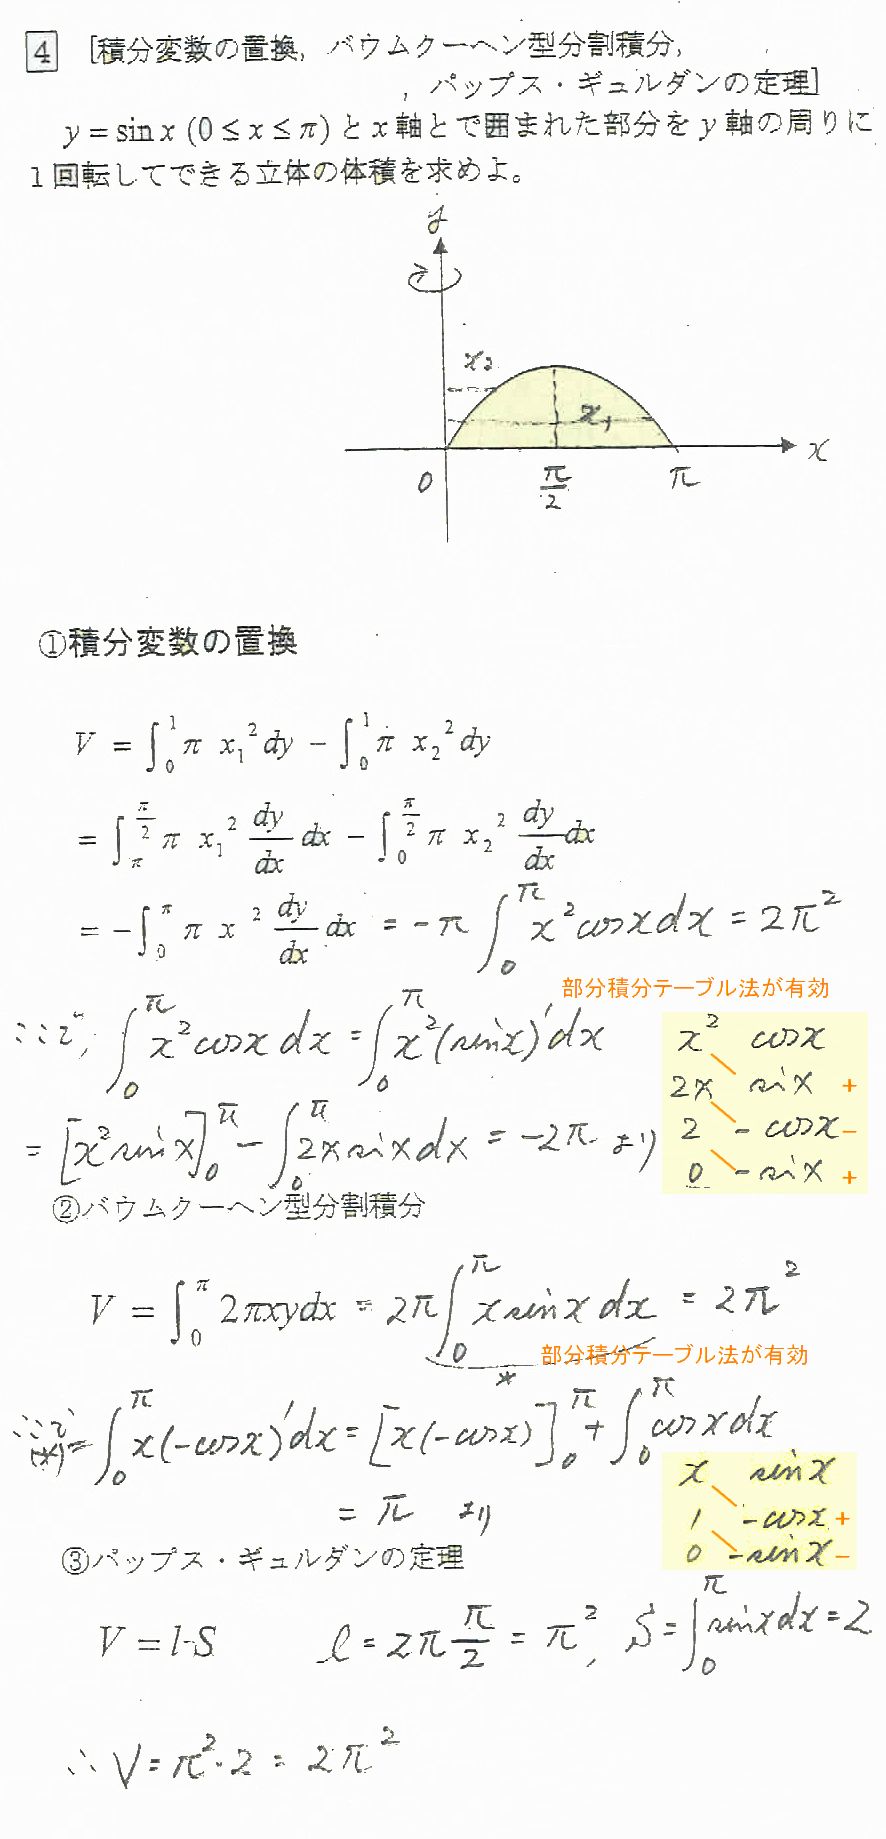 4 [積分変数の置換, バウムクーヘン型分割積分,
, パップス・ギュルダンの定理]
y = sin x (0 ≤ x ≤ π) と x 軸とで囲まれた部分を y 軸の周りに
１回転してできる立体の体積を求めよ。
y
x₂
x₁
0 π/2 π x
①積分変数の置換
V = ∫₀¹ π x₁² dy − ∫₀¹ π x₂² dy
= ∫_π^{π/2} π x₁² dy/dx dx − ∫₀^{π/2} π x₂² dy/dx dx
= −∫₀^π π x² dy/dx dx = −π ∫₀^π x² cosx dx = 2π²
部分積分テーブル法が有効
ここで, ∫₀^π x² cosx dx = ∫₀^π x² (sinx)' dx
= [x² sinx]₀^π − ∫₀^π 2x six dx = −2π より
x² cosx
2x six +
2 −cosx −
0 −six +
②バウムクーヘン型分割積分
V = ∫₀^π 2πxydx = 2π ∫₀^π x sinx dx = 2π²
* 部分積分テーブル法が有効
ここで (*) = ∫₀^π x(−cosx)' dx = [x(−cosx)]₀^π + ∫₀^π cosx dx
= π より
x sinx
1 −cosx +
0 −sinx −
③パップス・ギュルダンの定理
V = l·S l = 2π π/2 = π², S = ∫₀^π sinx dx = 2
∴ V = π²·2 = 2π²